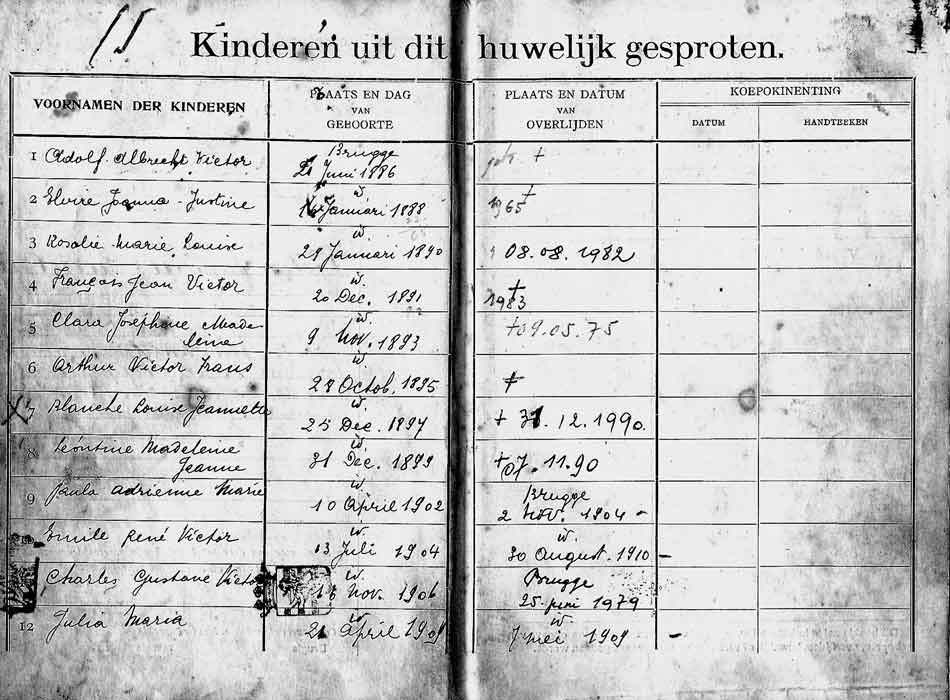 15
Kinderen uit dit huwelijk gesproten.
VOORNAMEN DER KINDEREN
PLAATS EN DAG
VAN
GEBOORTE
PLAATS EN DATUM
VAN
OVERLIJDEN
KOEPOKINENTING
DATUM
HANDTEEKEN
1 Adolf Albrecht Victor
Brugge
Juni 1886
+
2 Elvire Joanna - Justine
id.
Januari 1888
+
1965
3 Rosalie Marie Louise
id.
29 Januari 1890
08.08.1982
4 François Jean Victor
id.
20 Dec. 1891
+
1983
5 Clara Joséphine Made
leine
id.
9 Nov. 1893
+09.05.75
6 Arthur Victor Frans
id.
28 Octob. 1895
+
7 Blanche Louise Jeannette
id.
25 Dec. 1897
+ 31.12.1990
8 Léontine Madeleine
Jeanne
id.
31 Dec. 1899
+07.11.90
9 Paula Adrienne Marie
id.
10 April 1902
Brugge
2 Nov. 1904 -
10 Emile René Victor
id.
13 Juli 1904
id.
30 August. 1910 -
Charles Gustave Victor
id.
Nov. 1906
Brugge
25 juni 1979
12 Julia Maria
id.
April 1909
id.
mei 1909 -